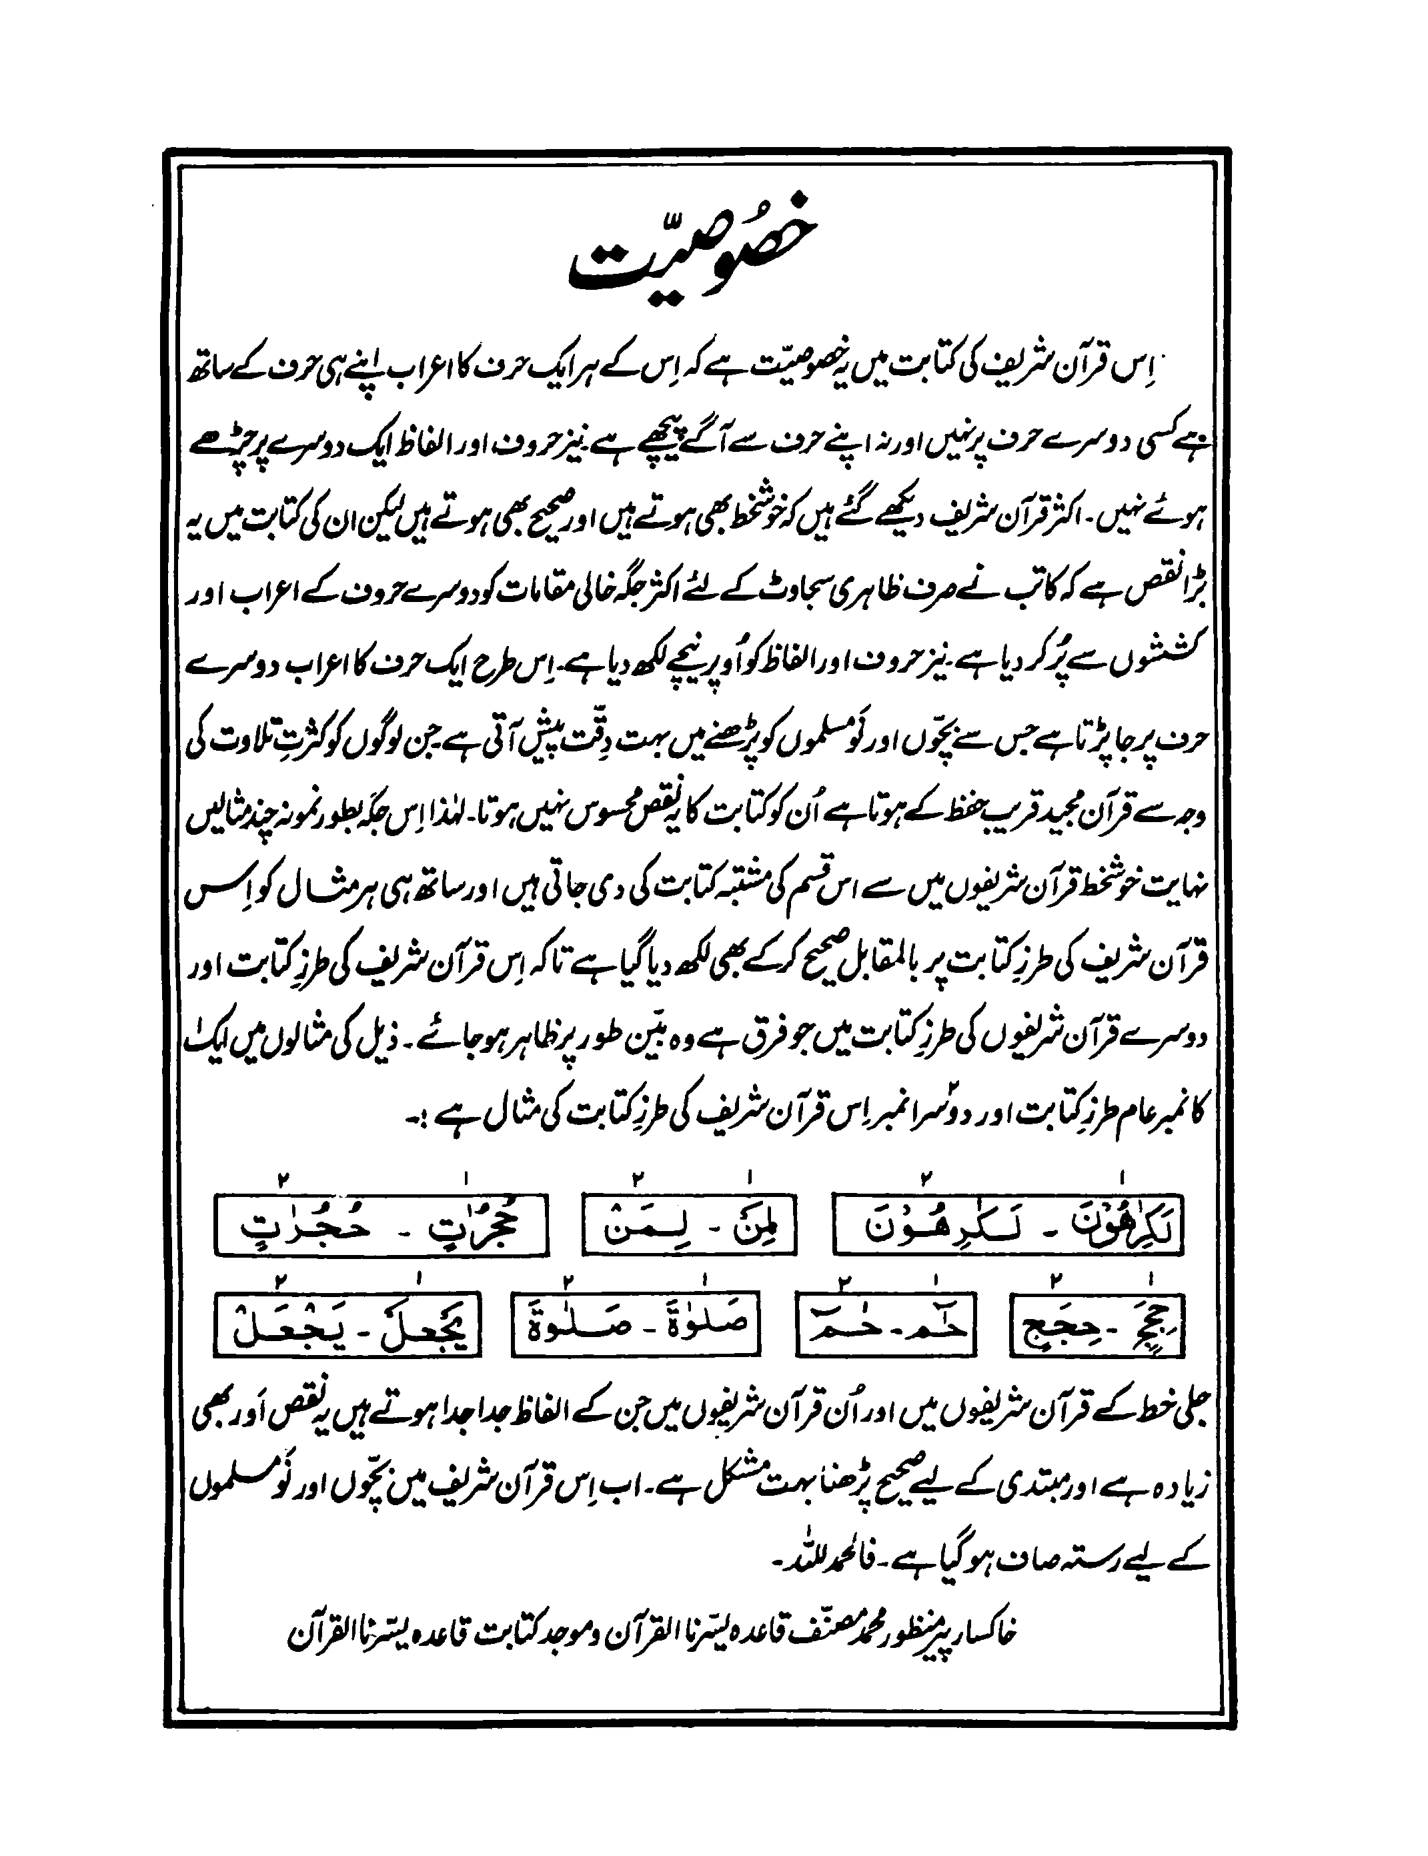 خصُوصیّت
اِس قرآن شریف کی کتابت میں یہ خصوصیّت ہے کہ اِس کے ہر ایک حرف کا اعراب اپنے ہی حرف کے ساتھ
ہے کسی دوسرے حرف پر نہیں اور نہ اپنے حرف سے آگے پیچھے ہے۔ نیز حروف اور الفاظ ایک دوسرے پر چڑھے
ہوئے نہیں۔ اکثر قرآن شریف دیکھے گئے ہیں کہ خوشخط بھی ہوتے ہیں اور صحیح بھی ہوتے ہیں لیکن ان کی کتابت میں یہ
بڑا نقص ہے کہ کاتب نے صرف ظاہری سجاوٹ کے لئے اکثر جگہ خالی مقامات کو دوسرے حروف کے اعراب اور
کششوں سے پُر کر دیا ہے۔ نیز حروف اور الفاظ کو اُوپر نیچے لکھ دیا ہے۔ اِس طرح ایک حرف کا اعراب دوسرے
حرف پر جا پڑتا ہے جس سے بچّوں اور نَومسلموں کو پڑھنے میں بہت دِقّت پیش آتی ہے۔ جن لوگوں کو کثرتِ تلاوت کی
وجہ سے قرآن مجید قریب حفظ کے ہوتا ہے اُن کو کتابت کا یہ نقص محسوس نہیں ہوتا۔ لہٰذا اِس جگہ بطور نمونہ چند مثالیں
نہایت خوشخط قرآن شریفوں میں سے اس قسم کی مشتبہ کتابت کی دی جاتی ہیں اور ساتھ ہی ہر مثال کو اِس
قرآن شریف کی طرزِ کتابت پر بالمقابل صحیح کر کے بھی لکھ دیا گیا ہے تاکہ اِس قرآن شریف کی طرزِ کتابت اور
دوسرے قرآن شریفوں کی طرزِ کتابت میں جو فرق ہے وہ بیّن طور پر ظاہر ہو جائے۔ ذیل کی مثالوں میں ایک ۱
کا نمبر عام طرزِ کتابت اور دوسرا ۲ نمبر اِس قرآن شریف کی طرزِ کتابت کی مثال ہے :۔
۱ ۲ ۱ ۲ ۱ ۲
لَکٰرِھُوْنَ ۔ لَکٰرِھُوْنَ لِمَنْ ۔ لِمَنْ حُجُرٰتٍ ۔ حُجُرٰتٍ
۱ ۲ ۱ ۲ ۱ ۲ ۱ ۲
حِجَجٍ ۔ حِجَجٍ حٰمٓ ۔ حٰمٓ صَلٰوةَ ۔ صَلٰوةَ یَجْعَلْ ۔ یَجْعَلْ
جلی خط کے قرآن شریفوں میں اور اُن قرآن شریفوں میں جن کے الفاظ جدا جدا ہوتے ہیں یہ نقص اَور بھی
زیادہ ہے اور مبتدی کے لیے صحیح پڑھنا بہت مشکل ہے۔ اب اِس قرآن شریف میں بچّوں اور نَومسلموں
کے لیے رستہ صاف ہو گیا ہے۔ فالحمد للہ۔
خاکسار پیر منظور محمد مصنّف قاعدہ یسّرنا القرآن و موجد کتابت قاعدہ یسّرنا القرآن